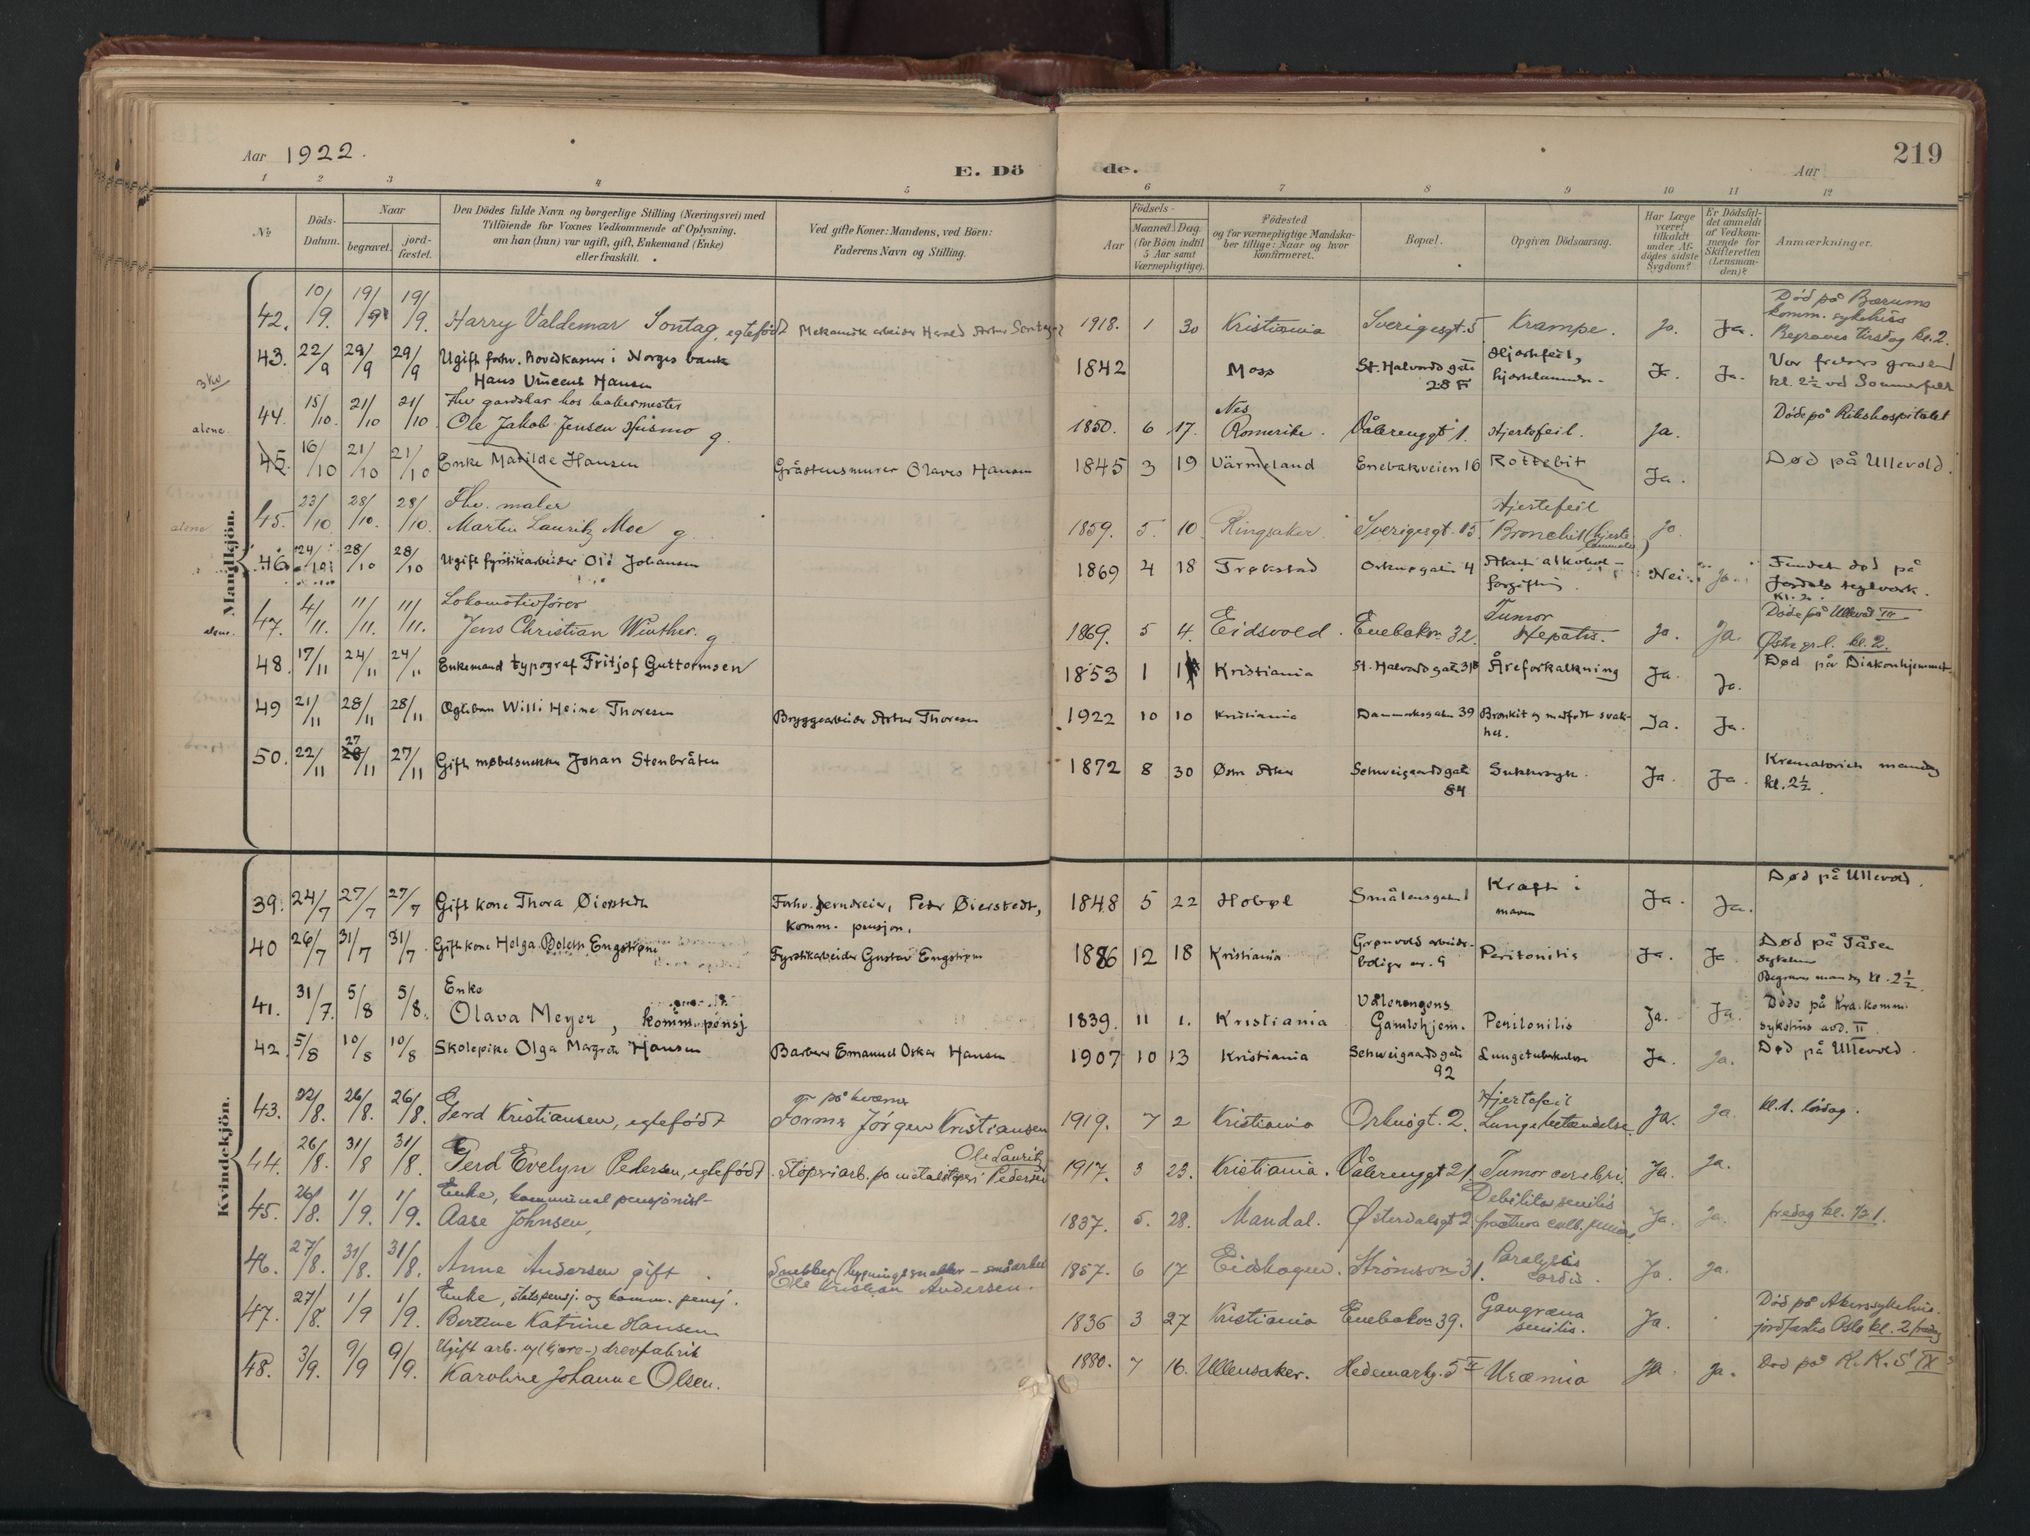 Aar 1922.
E. Dö
de.
219
Aar
1 2 3 4 5 6 7 8 9 10 11 12
№
Döds-Datum.
Naar
begravet.
jord-fæstet.
Den Dödes fulde Navn og borgerlige Stilling (Næringsvei) med
Tilföiende for Voxnes Vedkommende af Oplysning,
om han (hun) var ugift, gift, Enkemand (Enke)
eller fraskilt.
Ved gifte Koner: Mandens, ved Börn:
Faderens Navn og Stilling.
Födsels-
Aar
Maaned Dag
(for Börn indtil
5 Aar samt
Værnepligtige).
Födested
og for værnepligtige Mandska-
ber tillige: Naar og hvor
konfirmeret.
Bopæl.
Opgiven Dödsaarsag.
Har Læge
været
tilkaldt
under Af-
dödes sidste
Sygdom?
Er Dödsfal-
det anmeldt
af Vedkom-
mende for
Skifteretten
(Lensman-
den)?
Anmærkninger.
Mandkjön.
42. 10/9. 19/9 19/9. Harry Valdemar Sontag, egtefödt Mekanisk arbeider Harald Artur Sontag 1918. 1 30 Kristiania Sverigesgt. 5 Krampe. Ja. Ja. Död på Bærums
komm. sykehus
Begraves tirsdag kl. 2.
43. 22/9 29/9 29/9 Ugift forhv. hovedkasser i Norges bank
Hans Vincent Hansen 1842 Moss St. Halvards gate
28 F Hjertefeil, Ja. Ja. Vor frelsers gravlund
kl. 2½ ved Sommerfelt
alene.
44. 15/10 21/10 21/10 Fhv gardskar hos bakermester
Ole Jakob Jensen g. 1850. 6 17. Nes
Romerike. Vålerenggt 1. Hjertefeil. Ja. Döde på Rikshospitalet
45. 16/10 21/10 21/10 Enke Matilde Hansen Gråstensmurer Olaves Hansen 1845 3 19 Värmeland Enebakveien 16 Rottebit Ja. Død på Ullevold.
alene.
45. 23/10 28/10. 28/10. Fhv. maler
Martin Lauritz Moe g. 1859. 5. 10. Ringsaker Sverigesgt. 15. Hjertefeil
Bronchit Ja
46. 24/10 28/10 28/10 Ugift fyrstikarbeider Ole Johansen 1869 4 18 Trøkstad 4 Akut alkohol-
forgiftning Nei Ja Fundet død på
Jordals teglverk.
alene.
47. 4/11. 11/11. 11/11. Lokomotivförer
Jens Christian Winther. g 1869. 5 4. Eidsvold. Enebakv. 32. Tumor
Hepatis. Ja. Ja. Döde på Ullevål
Østre grl. kl. 2.
48. 17/11 24/11 24/11 Enkemand typograf Fritjof Guttormsen 1853 1 Kristiania St. Halvards gate 31 Åreforkalkning Ja. Ja. Død på Diakonhjemmet.
49 21/11 28/11 28/11 Egteban Willi Heine Thoresen Bryggearbeider Artur Thoresen 1922 10 10 Kristiania Danmarksgaten 39 Bronkit og medfødt svak-
het. Ja. Ja.
50. 22/11 27/11 27/11 Gift møbelsnekker Johan Stenbråten 1872 8 30 Østre Aker Schweigaardsgate
84 Sukkersyke. Ja. Ja. Krematoriet mandag
kl. 2½.
Kvindekjön.
39. 24/7 27/7 27/7 Gift kone Thora Øierstedt Forhv. jerndreier, Peter Øierstedt,
komm. pensjon. 1848 5 22 Hobøl Smålensgaten 1 Kræft i
maven Ja. Ja. Død på Ullevold.
40 26/7 31/7 31/7. Gift kone Helga Boletta Engstrøm Fyrstikarbeider Gustav Engstrøm 1886 12 18 Kristiania Grønvold arbeider-
boliger nr. 9 Peritonitis Ja. Ja. Død på Tåsen
sykehus
Begraves mandag kl. 2½.
41. 31/7. 5/8 5/8. Enke
Olava Meyer, komm. pensj. 1839. 11 1. Kristiania Vålerengens
Gamlehjem. Peritonitis Ja. Ja. Döde på Kra. komm.
sykehus avd. II
42. 5/8 10/8 10/8 Skolepike Olga Margrete Hansen Barberer Emanuel Oskar Hansen 1907 10 13 Kristiania Schweigaardsgate
92 Lungetuberkulose Ja. Ja. Død på Ullevold.
43. 22/8. 26/8. 26/8. Gerd Kristiansen, egtefödt Former Jörgen Kristiansen 1919. 7 2 Kristiania Orknögt. 2. Hjertefeil
Lungebetændelse. Ja. Ja. kl. 1. lördag.
44. 26/8. 31/8 31/8. Gerd Evelyn Pedersen, egtefödt. Ole Lauritz
Stöperiarb. på metalstöperi Pedersen 1917. 3 23. Kristiania. Vålerenggt 21. Tumor cerebri. Ja. Ja.
45. 26/8. 1/9. 1/9. Enke, kommunal pensjonist
Aase Johnsen, 1837. 5. 28. Mandal. Østerdalsgt 2. Debilitas senilis
fractura coll. femoris Ja. Ja. fredag kl. ½ 1.
46. 27/8. 31/8. 31/8. Anne Andersen gift. Snekker (bygningssnekker - småarbei
Ole Kristian Andersen. 1857. 6 17 Eidskogen. Strömsv. 31. Paralysis
cordis. Ja. Ja.
47. 27/8. 1/9 1/9 Enke, statspensj. og komm. pensj.
Bertine Katrine Hansen 1836 3 27 Kristiania Enebakv. 39. Gangræna
senilis. Ja. Död på Akers sykehus.
jordfæstes Oslo kl. 2 fredag
48. 3/9. 9/9. 9/9. Ugift arb. drevfabrik
Karoline Johanne Olsen. 1880. 7 16. Ullensaker. Hedemarkg. 5 II Uræmia Ja. Ja. Död på K. K. S. IX